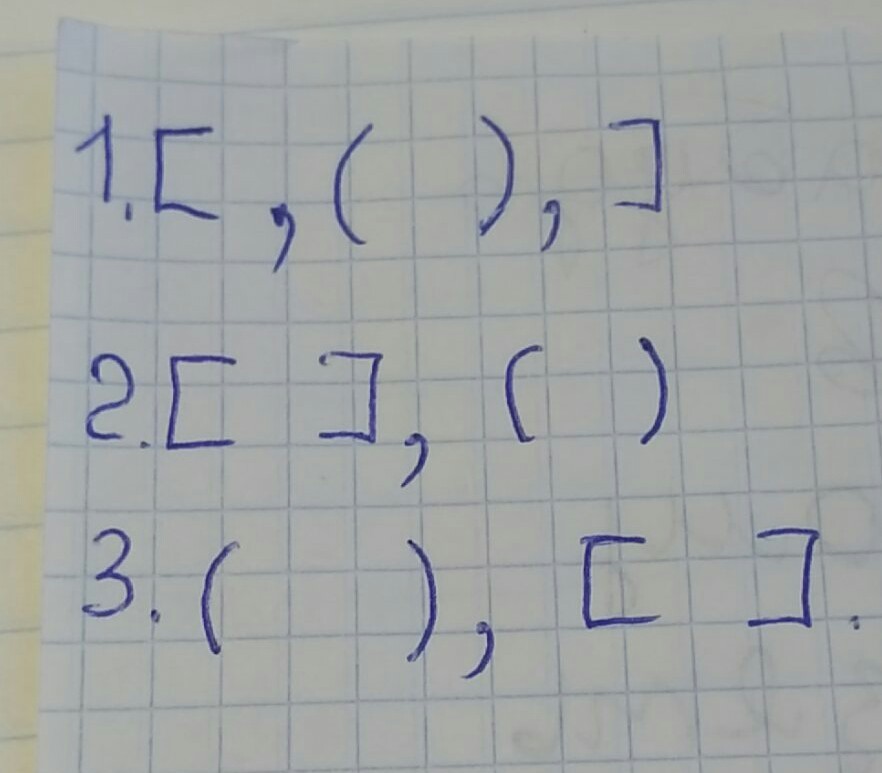 1. [ , ( ), ]
2. [ ], ( )
3. ( ), [ ].